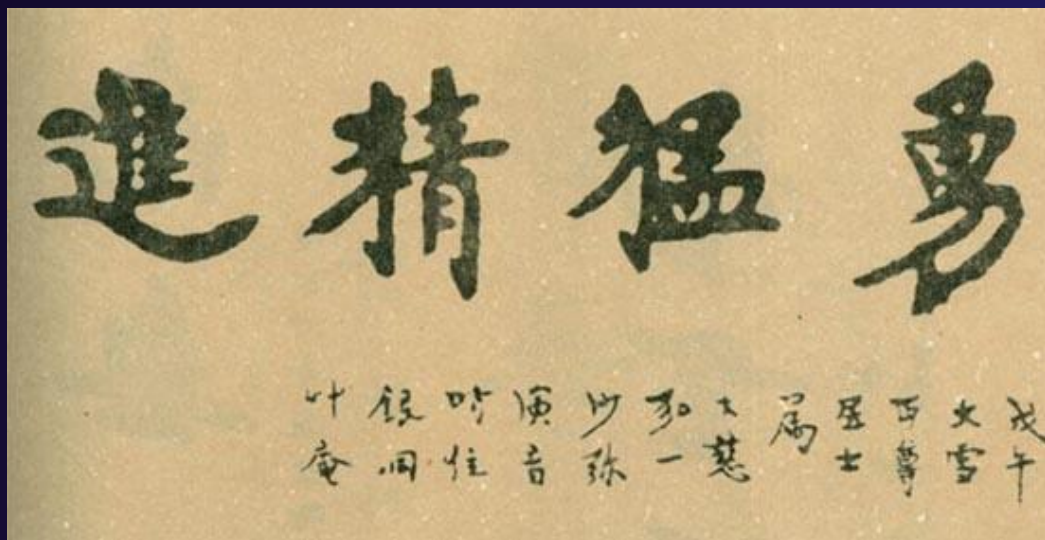 勇猛精進
戊午
大雪
丏尊
居士
属
大慈
弘一
沙弥
演音
住
銀洞
庵